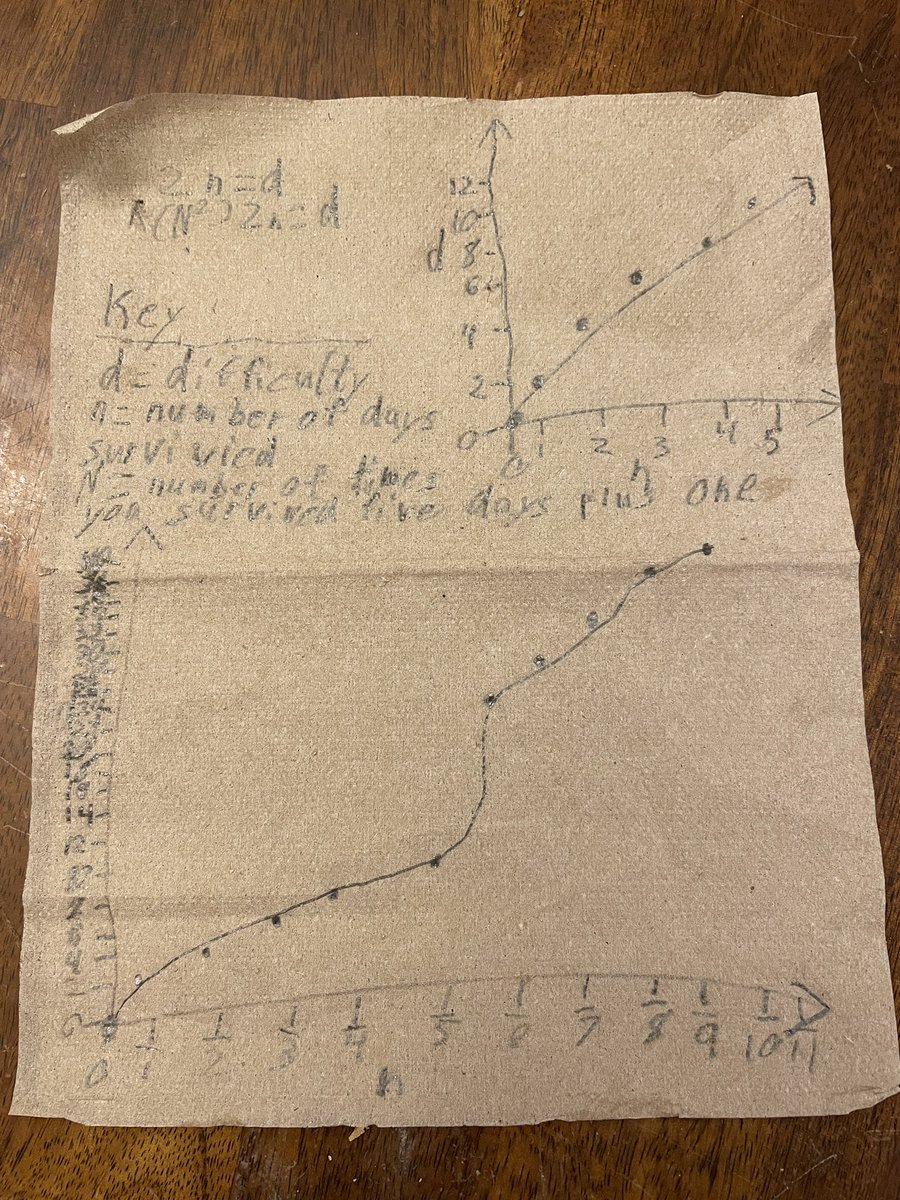 2 n=d
(N²)2n=d
Key
d= difficulty
n= number of days
survivied
N= number of times
you survived five days plus one
12
10
d 8
6
4
2
0
0 1 2 3 4 5
n
0 1 2 3 4 5 6 7 8 9 10 11
n